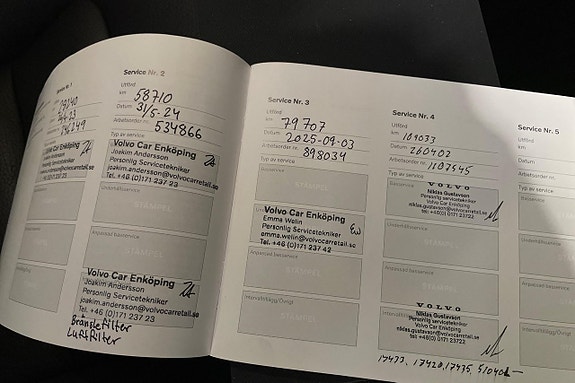 Service Nr. 2
Utförd
km 58710
Datum 31/5-24
Arbetsorder nr. 534866
Typ av service
Volvo Car Enköping
Joakim Andersson
Personlig Servicetekniker
joakim.andersson@volvocarretail.se
Tel. +46 (0)171 237 23
STÄMPEL
Volvo Car Enköping
Joakim Andersson
Personlig Servicetekniker
joakim.andersson@volvocarretail.se
Tel. +46 (0)171 237 23
Bränslefilter
Luftfilter
Service Nr. 3
Utförd
km 79707
Datum 2025-09-03
Arbetsorder nr. 898034
Typ av service
Basservice
STÄMPEL
Underhållsservice
Volvo Car Enköping
Emma Welin
Personlig Servicetekniker
emma.welin@volvocarretail.se
Tel. +46 (0)171 237 42
Anpassad basservice
STÄMPEL
Intervalltillägg/Övrigt
STÄMPEL
Service Nr. 4
Utförd
km 109033
Datum 260402
Arbetsorder nr. 1107545
Typ av service
Basservice
VOLVO
Niklas Gustavsson
Personlig servicetekniker
Volvo Car Enköping
niklas.gustavsson@volvocarretail.se
tel: +46 (0)171 23722
Underhållsservice
STÄMPEL
Anpassad basservice
STÄMPEL
Intervalltillägg/Övrigt
VOLVO
Niklas Gustavsson
Personlig servicetekniker
Volvo Car Enköping
niklas.gustavsson@volvocarretail.se
tel: +46 (0)171 23722
17433, 17420, 17435,
Service Nr. 5
Utförd
km
Datum
Arbetsorder nr.
Typ av service
Basservice
Underhållsservice
Anpassad basservice